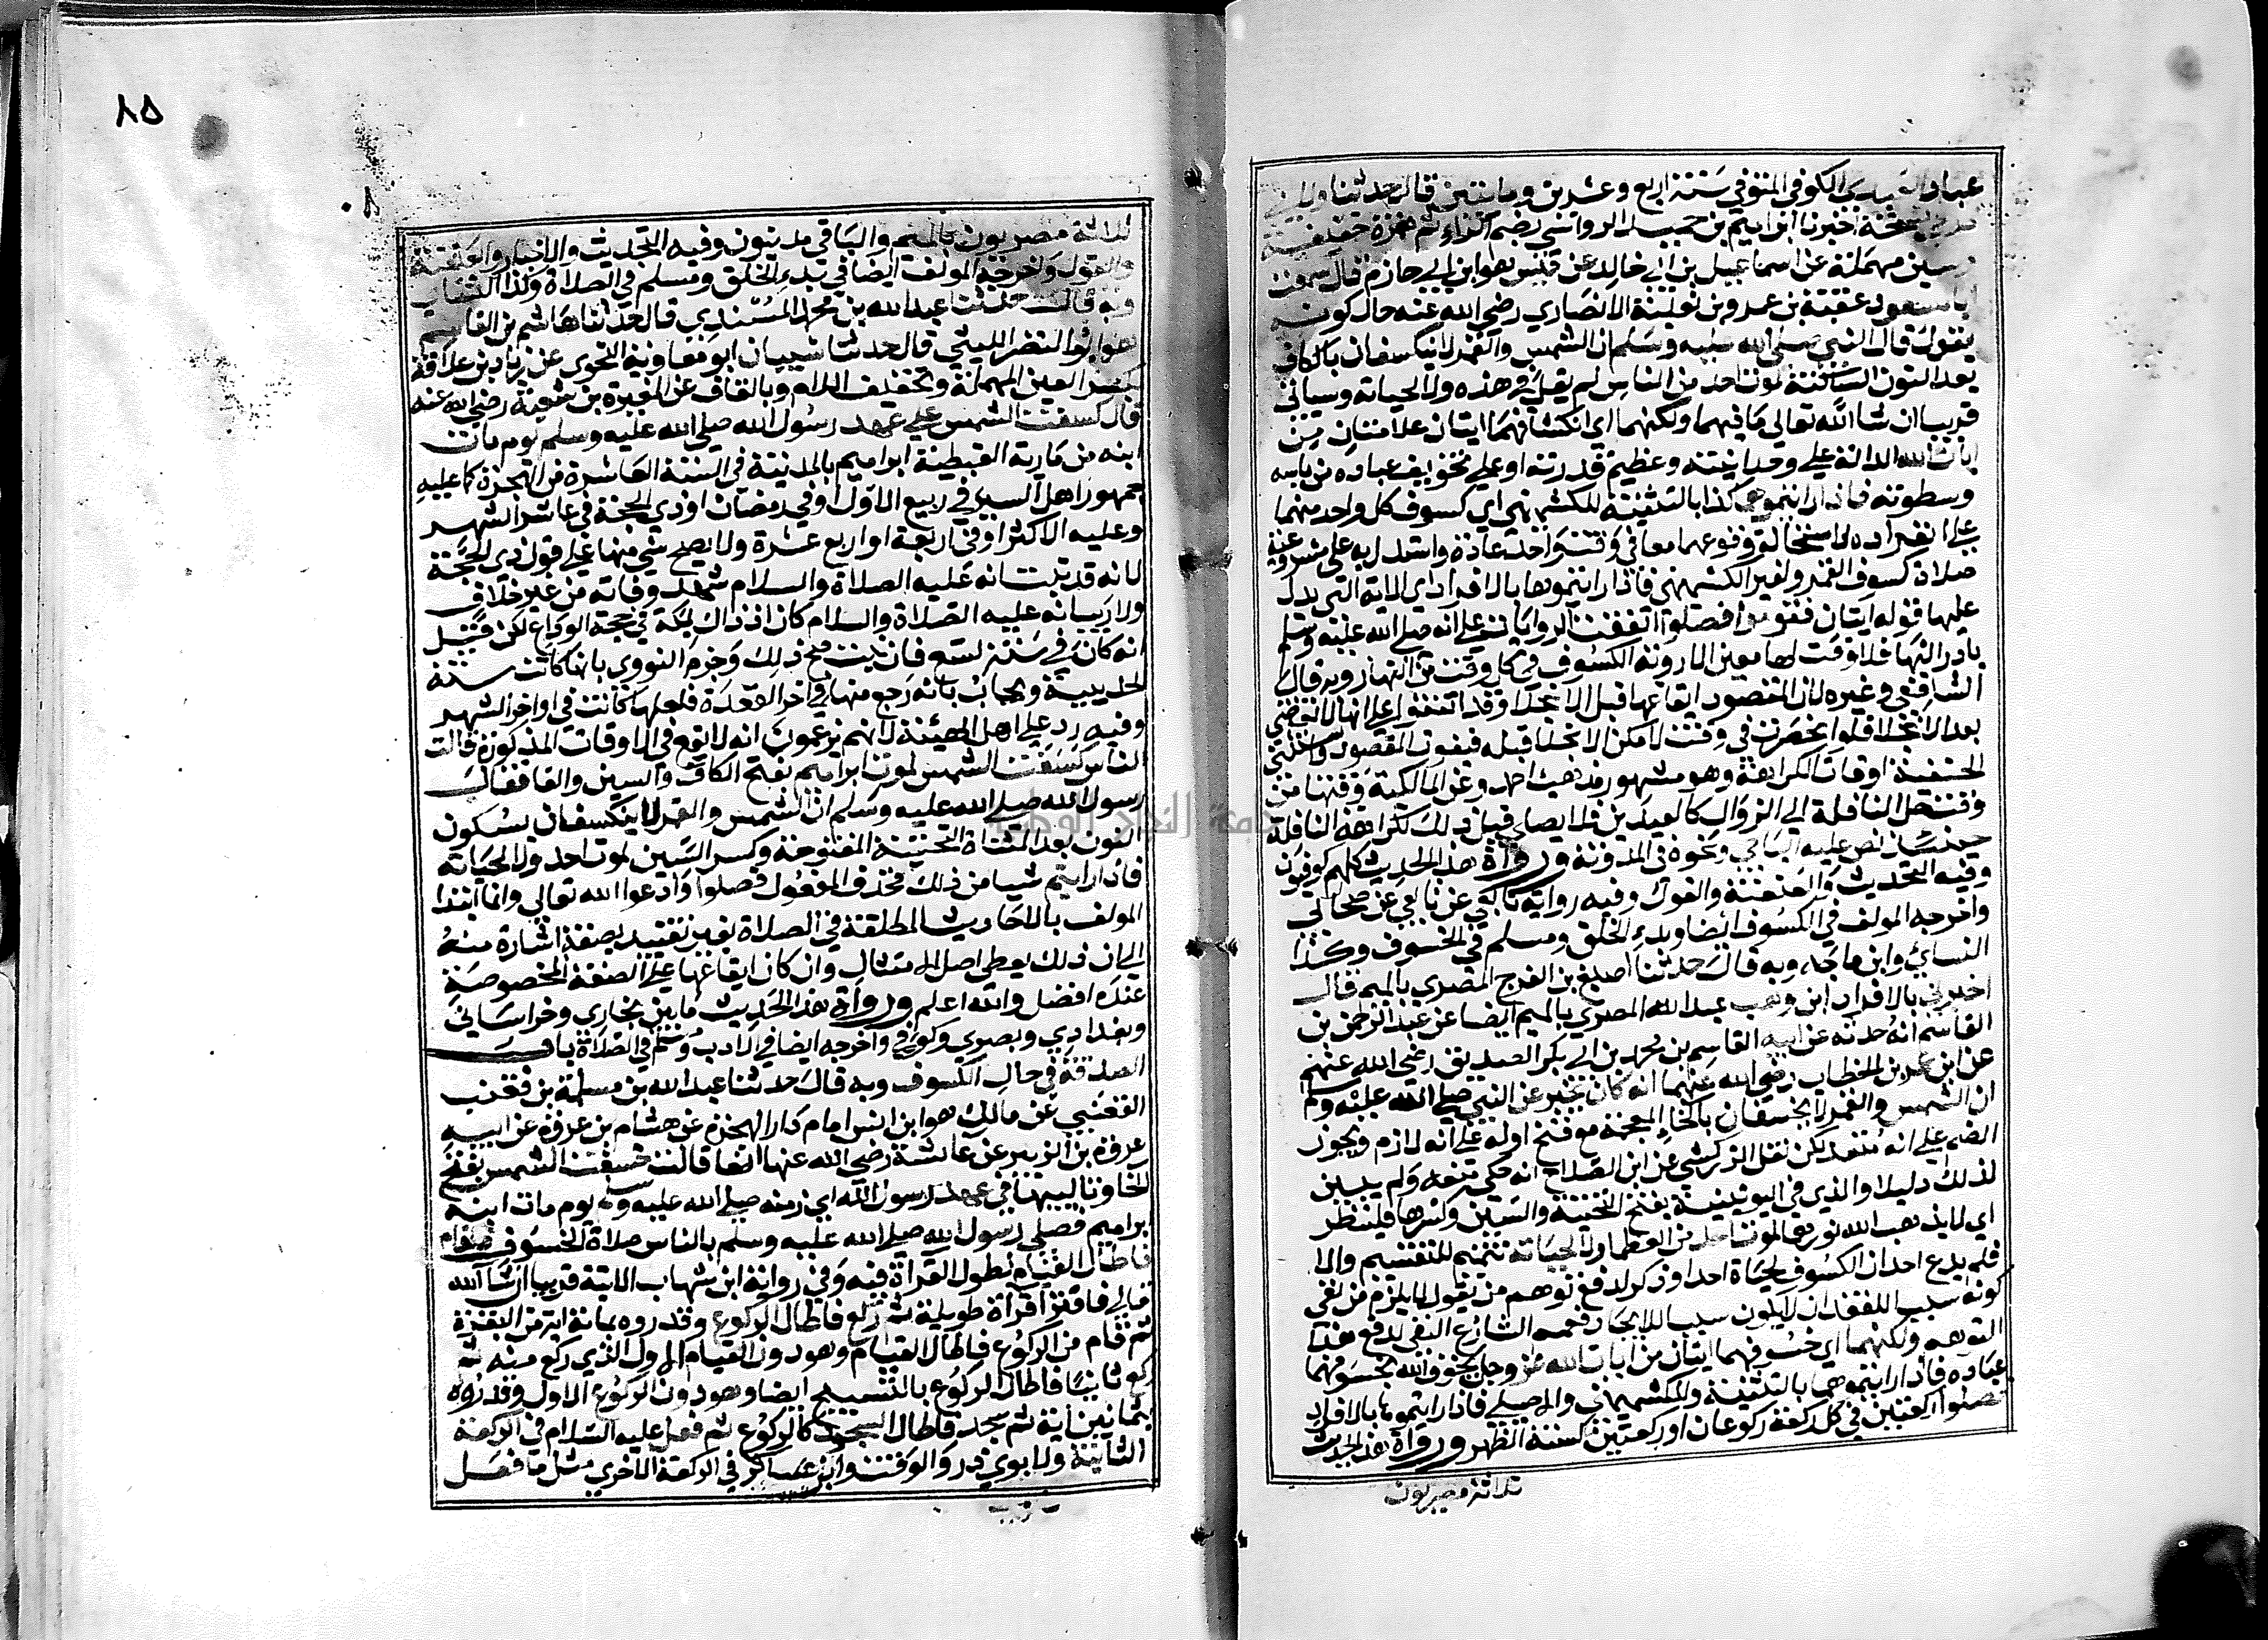 عباد العبدى الكوفي المتوفي سنة اربع وعشرين ومائتين قال حدثنا وللاربعة
اخبرنا ابراهيم بن حميد الرواسي بضم الراء ثم همزة خفيفة
وسين مهملة عن اسماعيل بن ابي خالد عن قيس هو ابن ابي حازم قال سمعت
ابا مسعود عقبة بن عمرو بن ثعلبة الانصاري رضي الله عنه حال كونه
يقول قال النبي صلى الله عليه وسلم ان الشمس والقمر لا ينكسفان بالكاف
بعد النون الساكنة لموت احد من الناس لم يقل في هذه ولا لحياته وسياتي
قريبا ان شا الله تعالي ما فيهما ولكنهما اي انكسافهما ايتان علامتان من
ايات الله الدالة علي وحدانيته وعظيم قدرته او علي تخويف عباده من باسه
وسطوته فاذا رايتموهما كذا بالتثنية للكشميهني اي كسوف كل واحد منهما
علي انفراده لاستحالة وقوعهما معا في وقت واحد عادة واستدل به على مشروعية
صلاة كسوف القمر ولغير الكشميهني فاذا رايتموها بالافراد اي الاية التي يدل
عليها قوله ايتان فقوموا فصلوا اتفقت الروايات علي انه صلي الله عليه وسلم
بادر اليها فلا وقت لها معين الا روية الكسوف في كل وقت من النهار وبه قال
الشافعي وغيره لان المقصود ايقاعها قبل الانجلا وقد اتفقوا علي انها لا تقضي
بعد الانجلا فلو انحصرت في وقت لامكن الانجلا قبله فيفوت المقصود واستثني
الحنفية اوقات الكراهة وهو مشهور مذهب احمد وعن المالكية وقتها من
وقت حل النافلة الي الزوال كالعيدين فلا يصلي قبل ذلك لكراهة النافلة
حينئذ نص عليه الباجي ونحوه في المدونة ورواة هذا الحديث كلهم كوفيون
وفيه التحديث والعنعنة والقول وفيه رواية تابعي عن تابعي عن صحابي
واخرجه المولف في الكسوف ايضا وبدء الخلق ومسلم في الخسوف وكذا
النسائي وابن ماجه وبه قال حدثنا اصبغ بن الفرج المصري بالميم قال
اخبرني بالافراد ابن وهب عبد الله المصري بالميم ايضا عن عبد الرحمن بن
القاسم انه حدثه عن ابيه القاسم بن محمد بن ابي بكر الصديق رضي الله عنهم
عن ابن عمر بن الخطاب رضي الله عنهما انه كان يخبر عن النبي صلي الله عليه وسلم
ان الشمس والقمر لا يخسفان بالخاء المعجمة مع فتح اوله علي انه لازم ويجوز
الضم علي انه متعد لكن نقل الزركشي عن ابن الصلاح انه حكي منعه ولم يبين
لذلك دليلا والذي في اليونينية بفتح التحتية والسين وكسرها فلينظر
اي لا يذهب الله نورهما لموت احد من العظما ولا لحياته تتميم للتقسيم والا
فلم يدع احد ان الكسوف لحياة احد او ذكر لدفع توهم من يقول لا يلزم من نفي
كونه سببا للفقد ان لا يكون سببا للايجاد فعمم الشارع النفي لدفع هذا
التوهم ولكنهما اي خسوفهما ايتان من ايات الله عز وجل يخوف الله بخسوفهما
عباده فاذا رايتموهما بالتثنية وللكشميهني والاصيلي فاذا رايتموها بالافراد
فصلوا ركعتين في كل ركعة ركوعان او ركعتين كسنة الظهر ورواة هذا الحديث
ثلاثة مصريون
٨٥
ثلاثة مصريون بالميم والباقي مدنيون وفيه التحديث والاخبار والعنعنة
والقول واخرجه المولف ايضا في بدء الخلق ومسلم في الصلاة وكذا النسائي
وبه قال حدثنا عبد الله بن محمد المسندي قال حدثنا هاشم بن القاسم
هو ابو النضر الليثي قال حدثنا شيبان ابو معاوية النحوي عن زياد بن علاقة
بكسر العين المهملة وتخفيف اللام وبالقاف عن المغيرة بن شعبة رضي الله عنه
قال كسفت الشمس علي عهد رسول الله صلي الله عليه وسلم يوم مات
ابنه من مارية القبطية ابراهيم بالمدينة في السنة العاشرة من الهجرة كما عليه
جمهور اهل السير في ربيع الاول او في رمضان او ذي الحجة في عاشر الشهر
وعليه الاكثر او في اربعة او اربع عشرة ولا يصح شي منها علي قول ذي الحجة
لانه قد ثبت انه عليه الصلاة والسلام شهد وفاته من غير خلاف
ولا ريب انه عليه الصلاة والسلام كان اذ ذاك بمكة في حجة الوداع لكن قيل
انه كان في سنة تسع فان ثبت صح ذلك وجزم النووي بانها كانت سنة
الحديبية ويجاب بانه رجع منها في اخر القعدة فلعلها كانت في اواخر الشهر
وفيه رد علي اهل الهيئة لانهم يزعمون انه لا تقع في الاوقات المذكورة فقالت
الناس كسفت الشمس لموت ابراهيم بفتح الكاف والسين والفا فقال
رسول الله صلي الله عليه وسلم ان الشمس والقمر لا ينكسفان بسكون
النون بعد المثناة التحتية المفتوحة وكسر السين لموت احد ولا لحياته
فاذا رايتم شيا من ذلك فحذف المفعول فصلوا وادعوا الله تعالي وانما ابتدا
المولف بالاحاديث المطلقة في الصلاة بغير تقييد بصفة اشارة منه
الي ان ذلك يعطي اصل الامتثال وان كان ايقاعها علي الصفة المخصوصة
عنده افضل والله اعلم ورواة هذا الحديث ما بين بخاري وخراساني
وبغدادي وبصري وكوفي واخرجه ايضا في الادب ومسلم في الصلاة باب
الصدقة في حال الكسوف وبه قال حدثنا عبد الله بن مسلمة بن قعنب
القعنبي عن مالك هو ابن انس امام دار الهجرة عن هشام بن عروة عن ابيه
عروة بن الزبير عن عائشة رضي الله عنها انها قالت خسفت الشمس بفتح
الخا ونا ليبها في عهد رسول الله اي زمنه صلي الله عليه وسلم يوم مات ابنه
ابراهيم فصلي رسول الله صلي الله عليه وسلم بالناس صلاة الخسوف فقام
فاطال القيام لطول القراة فيه وفي رواية ابن شهاب الاتية قريبا ان شا الله
تعالي فاقترا قراة طويلة ثم ركع فاطال الركوع وقدروه بمائة اية من البقرة
ثم قام من الركوع فاطال القيام وهو دون القيام الاول الذي ركع منه ثم
ركع ثانيا فاطال الركوع بالتسبيح ايضا وهو دون الركوع الاول وقدروه
بثمانين اية ثم سجد فاطال السجود كالركوع ثم فعل عليه السلام في الركعة
الثانية ولابوي ذر والوقت وابن عساكر في الركعة الاخري مثل ما فعل